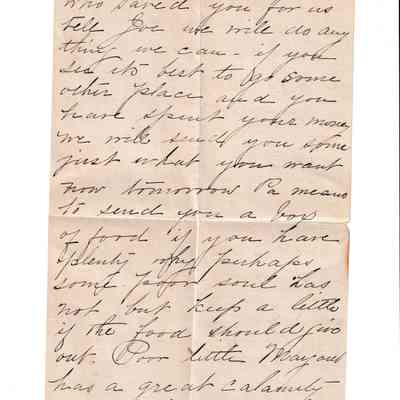 who saved you for us
tell Joe we will do any
thing we can - if you
see its best to go some
other place and you
have spent your money
we will send you some
just what you want
now tomorrow Pa means
to send you a box
of food if you have
plenty why perhaps
some poor soul has
not but keep a little
if the food should give
out. Poor little
has a great calamity